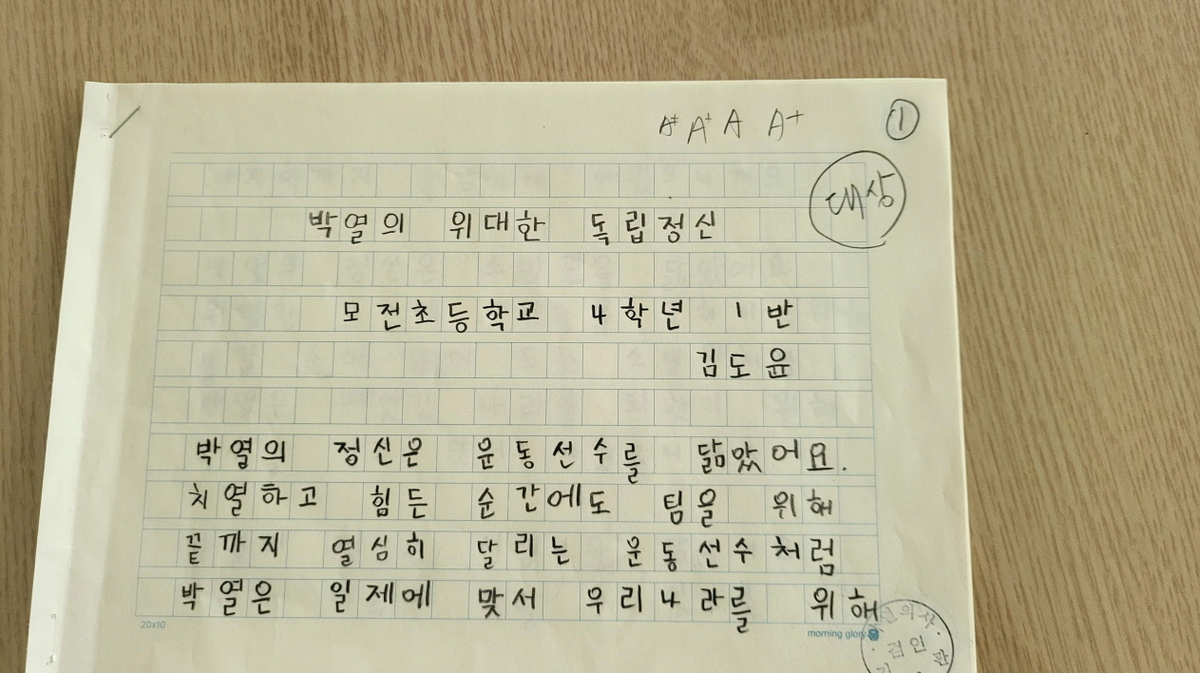 A+ A+ A A+
①
대상
박열의 위대한 독립정신
모전초등학교 4학년 1반
김도윤
박열의 정신은 운동선수를 닮았어요.
치열하고 힘든 순간에도 팀을 위해
끝까지 열심히 달리는 운동선수처럼
박열은 일제에 맞서 우리나라를 위해
20x10
morning glory
검인